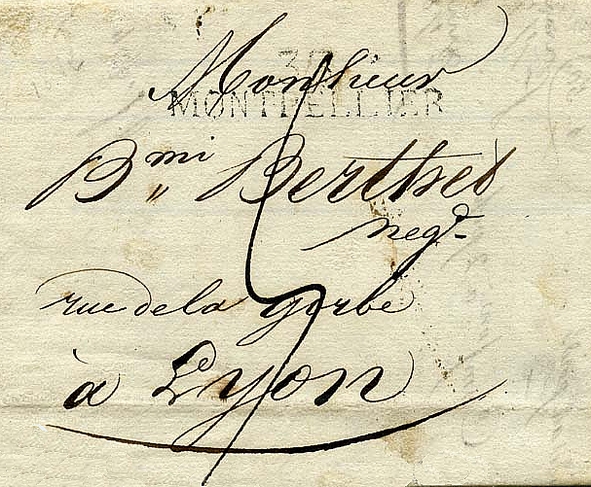 Monsieur
MONTPELLIER
Bmi Berthet
negt
rue de la gerbe
à Lyon